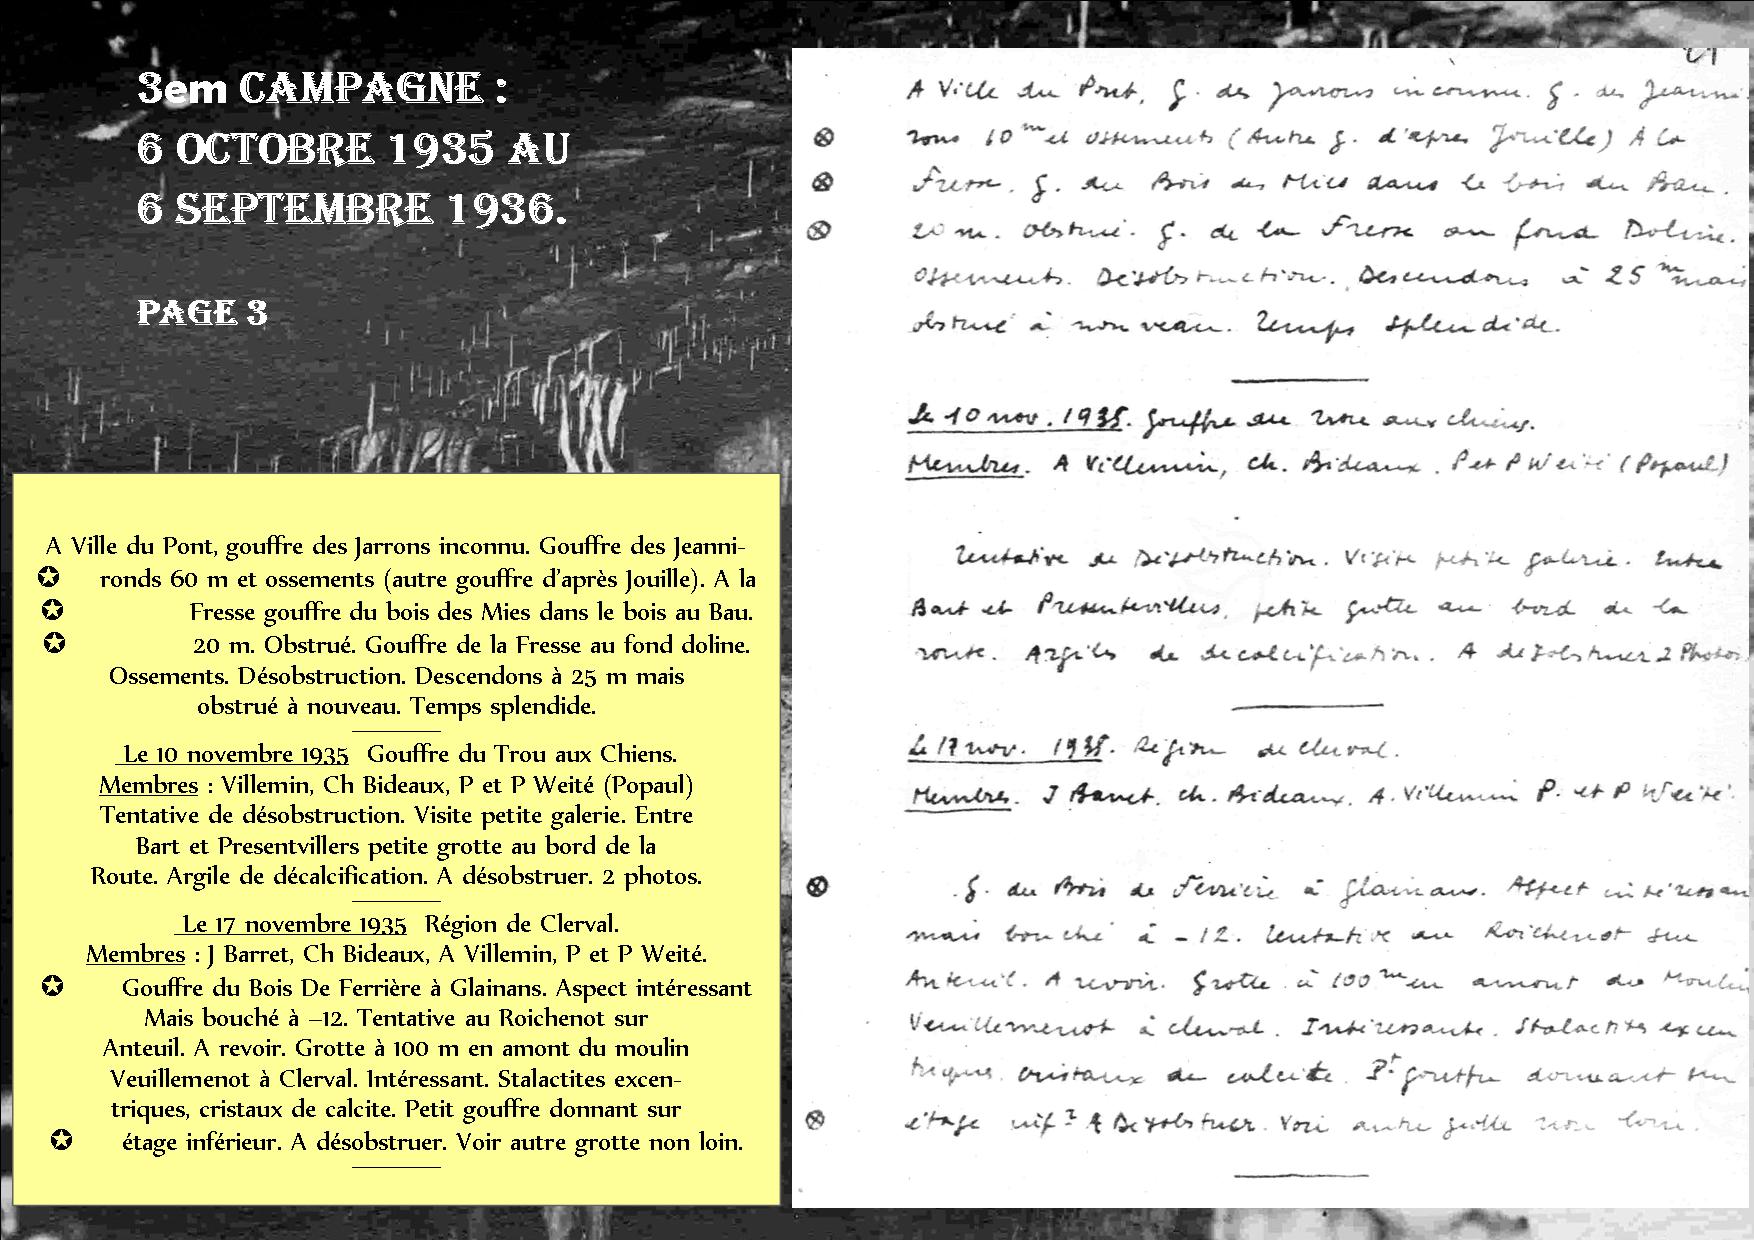 3em CAMPAGNE :
6 OCTOBRE 1935 AU
6 SEPTEMBRE 1936.
PAGE 3
A Ville du Pont, gouffre des Jarrons inconnu. Gouffre des Jeanni-
ronds 60 m et ossements (autre gouffre d'après Jouille). A la
Fresse gouffre du bois des Mies dans le bois au Bau.
20 m. Obstrué. Gouffre de la Fresse au fond doline.
Ossements. Désobstruction. Descendons à 25 m mais
obstrué à nouveau. Temps splendide.
Le 10 novembre 1935 Gouffre du Trou aux Chiens.
Membres : Villemin, Ch Bideaux, P et P Weité (Popaul)
Tentative de désobstruction. Visite petite galerie. Entre
Bart et Presentvillers petite grotte au bord de la
Route. Argile de décalcification. A désobstruer. 2 photos.
Le 17 novembre 1935 Région de Clerval.
Membres : J Barret, Ch Bideaux, A Villemin, P et P Weité.
Gouffre du Bois De Ferrière à Glainans. Aspect intéressant
Mais bouché à –12. Tentative au Roichenot sur
Anteuil. A revoir. Grotte à 100 m en amont du moulin
Veuillemenot à Clerval. Intéressant. Stalactites excen-
triques, cristaux de calcite. Petit gouffre donnant sur
étage inférieur. A désobstruer. Voir autre grotte non loin.
A Ville du Pont, g. des Jarrons inconnu. g. des Jeanni
rons 10 m et ossements (Autre g. d'apres Jouille) A la
Fresse. g. du Bois des Mies dans le bois du Bau.
20 m. Obstrué. g. de la Fresse au fond Doline.
Ossements. Désobstruction. Descendons à 25 m mais
obstrué à nouveau. Temps splendide.
Le 10 nov. 1935. Gouffre du Trou aux chiens.
Membres. A Villemin, ch. Bideaux. P et P Weité (Popaul)
Tentative de Désobstruction. Visite petite galerie. Entre
Bart et Presentevillers, petite grotte au bord de la
route. Argiles de decalcification. A desobstruer 2 Photos.
Le 17 nov. 1935. Région de Clerval.
Membres. J Barret, ch. Bideaux. A. Villemin P. et P Weité.
g. du Bois de Ferrière à Glainans. Aspect intéressan
mais bouché à -12. Tentative au Roichenot sur
Anteuil. A revoir. Grotte à 100 m en amont du Moulin
Veuillemenot à Clerval. Intéressante. Stalactites excen
triques, cristaux de calcite. Pt gouffre donnant sur
étage inf r A Desobstruer. Voir autre grotte non loin.